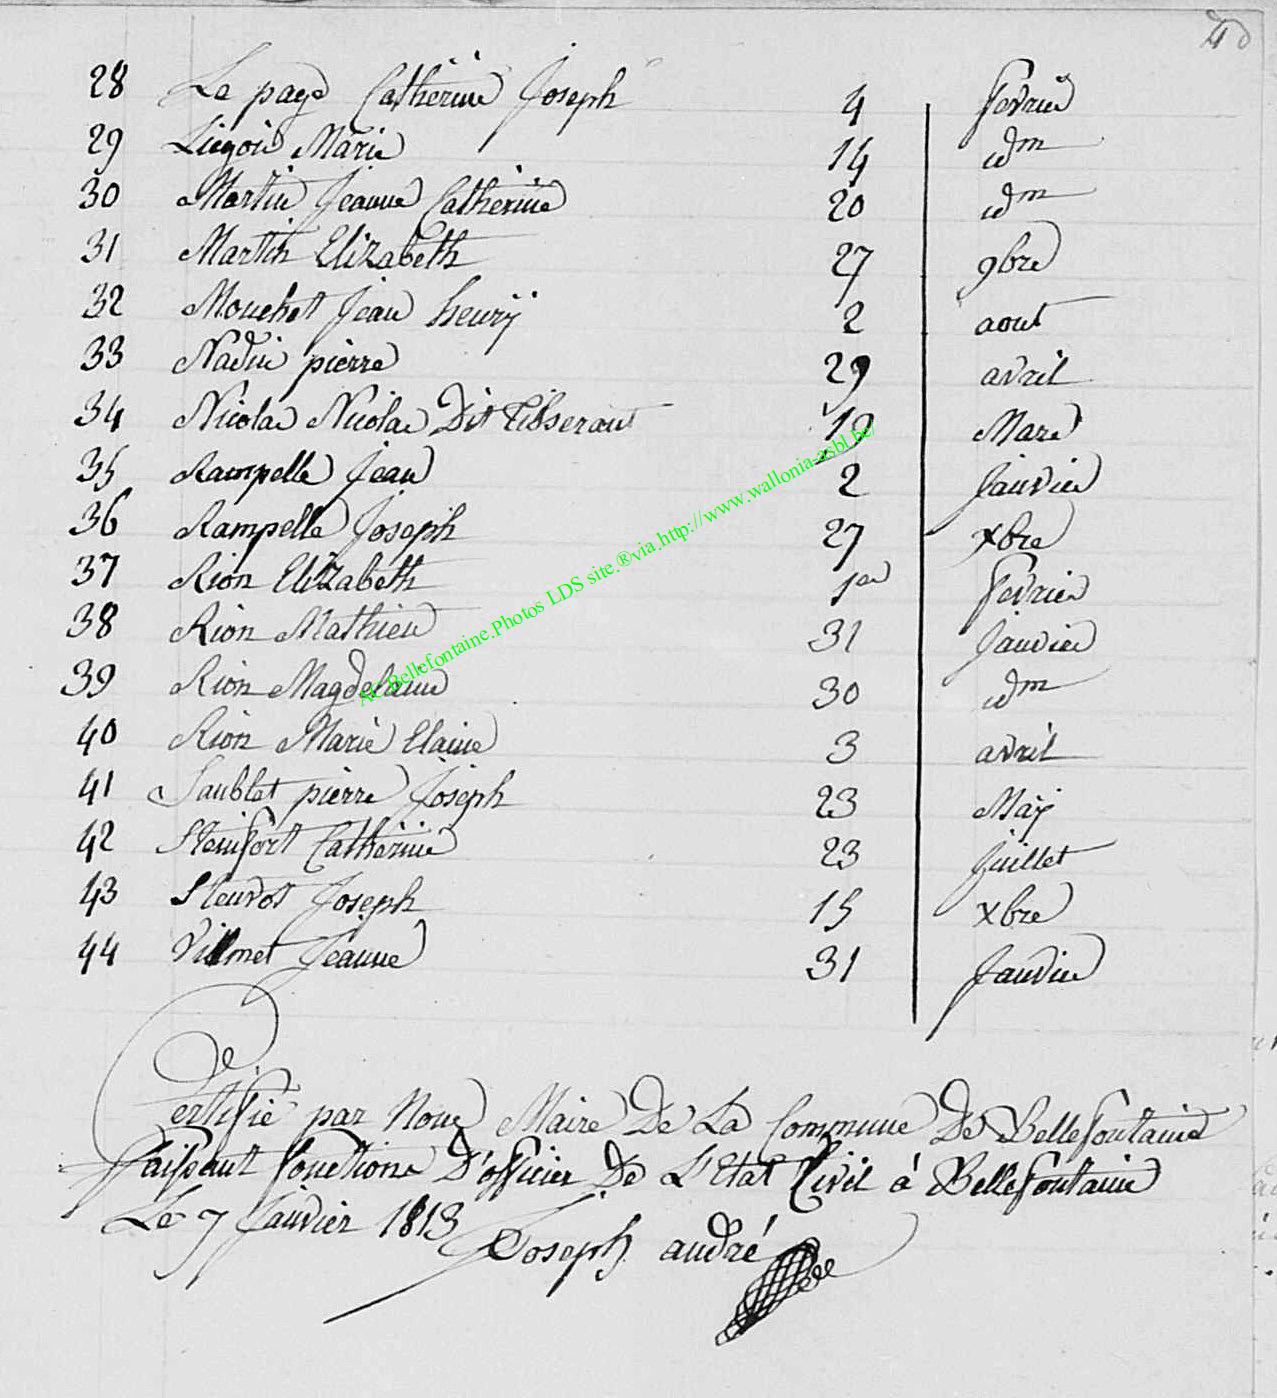 28 Le page Catherine Joseph 4 fevrier
29 Liegois Marie 14 idm
30 Martin Jeanne Catherine 20 idm
31 Martin Elizabeth 27 9bre
32 Mouchet Jean henrÿ 2 aout
33 Nadin pierre 29 avril
34 Nicolas Nicolas Dit Tisserant 19 Mars
35 Rampelle Jean 2 Janvier
36 Rampelle Joseph 27 xbre
37 Rion Elizabeth 1er fevrier
38 Rion Mathieu 31 Janvier
39 Rion Magdelaine 30 idm
40 Rion Marie Elaine 3 avril
41 Saublet pierre Joseph 23 Maÿ
42 Steinfort Catherine 23 Juillet
43 Steuvot Joseph 15 xbre
44 Vilmet Jeanne 31 Janvier
Certifié par Nous Maire De La Commune De Bellefontaine
faisant fonctions D'officier De L'Etat Civil á Bellefontaine
Le 7 Janvier 1813 Joseph andré
AC.Bellefontaine.Photos LDS site.®via.http://www.wallonia-asbl.be/